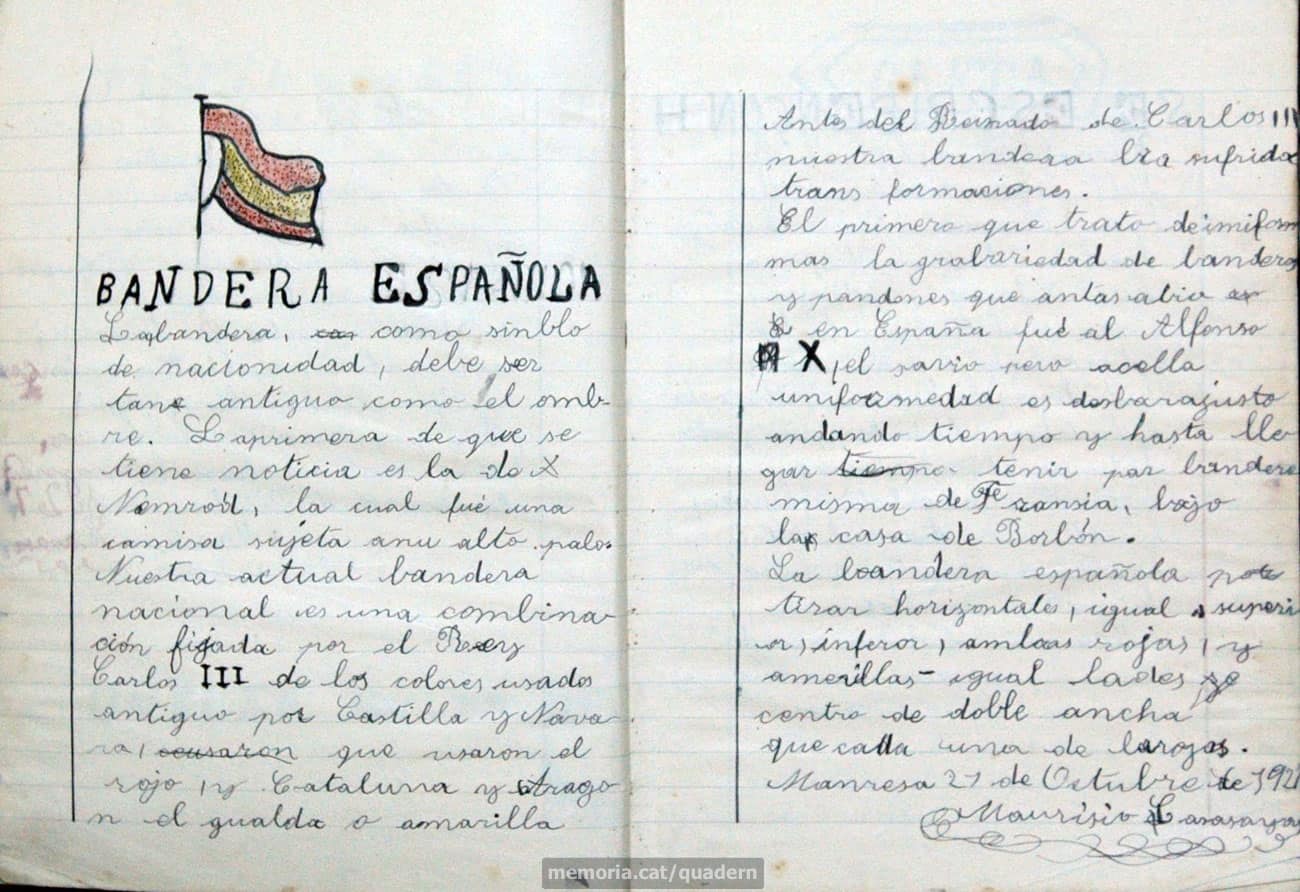 BANDERA ESPAÑOLA
La bandera, como sinblo
de nacionidad, debe ser
tan antiguo como el omb-
re. La primera de que se
tiene noticia es la de
Nemrod, la cual fué una
camisa sujeta anu alto palo.
Nuestra actual bandera
nacional es una combina-
ción fijada por el Rey
Carlos III de los colores usados
antiguo por Castilla y Nava-
ra, que usaron el
rojo, y Cataluna y Arago-
n el gualda o amarilla
Antes del Reinado de Carlos III
nuestra bandera ha sufrido
trans formaciones.
El primero que trato de
mas la grabariedad de bandera
y pandones que antas abia
en España fué al Alfonso
X, el savio pero acella
uniformedad es desbarajusto
andando tiempo y hasta lle-
gar tenir par bandera
misma de Fransia, bajo
la casa de Borbón.
La bandera española
tirar horizontales, igual superi-
or, inferor, ambas rojas, y
amerillas- igual lades
centro de doble ancha
que cada una de larojas.
Manresa 27 de Octubre de 192
Maurisio Casasayas
memoria.cat/quadern